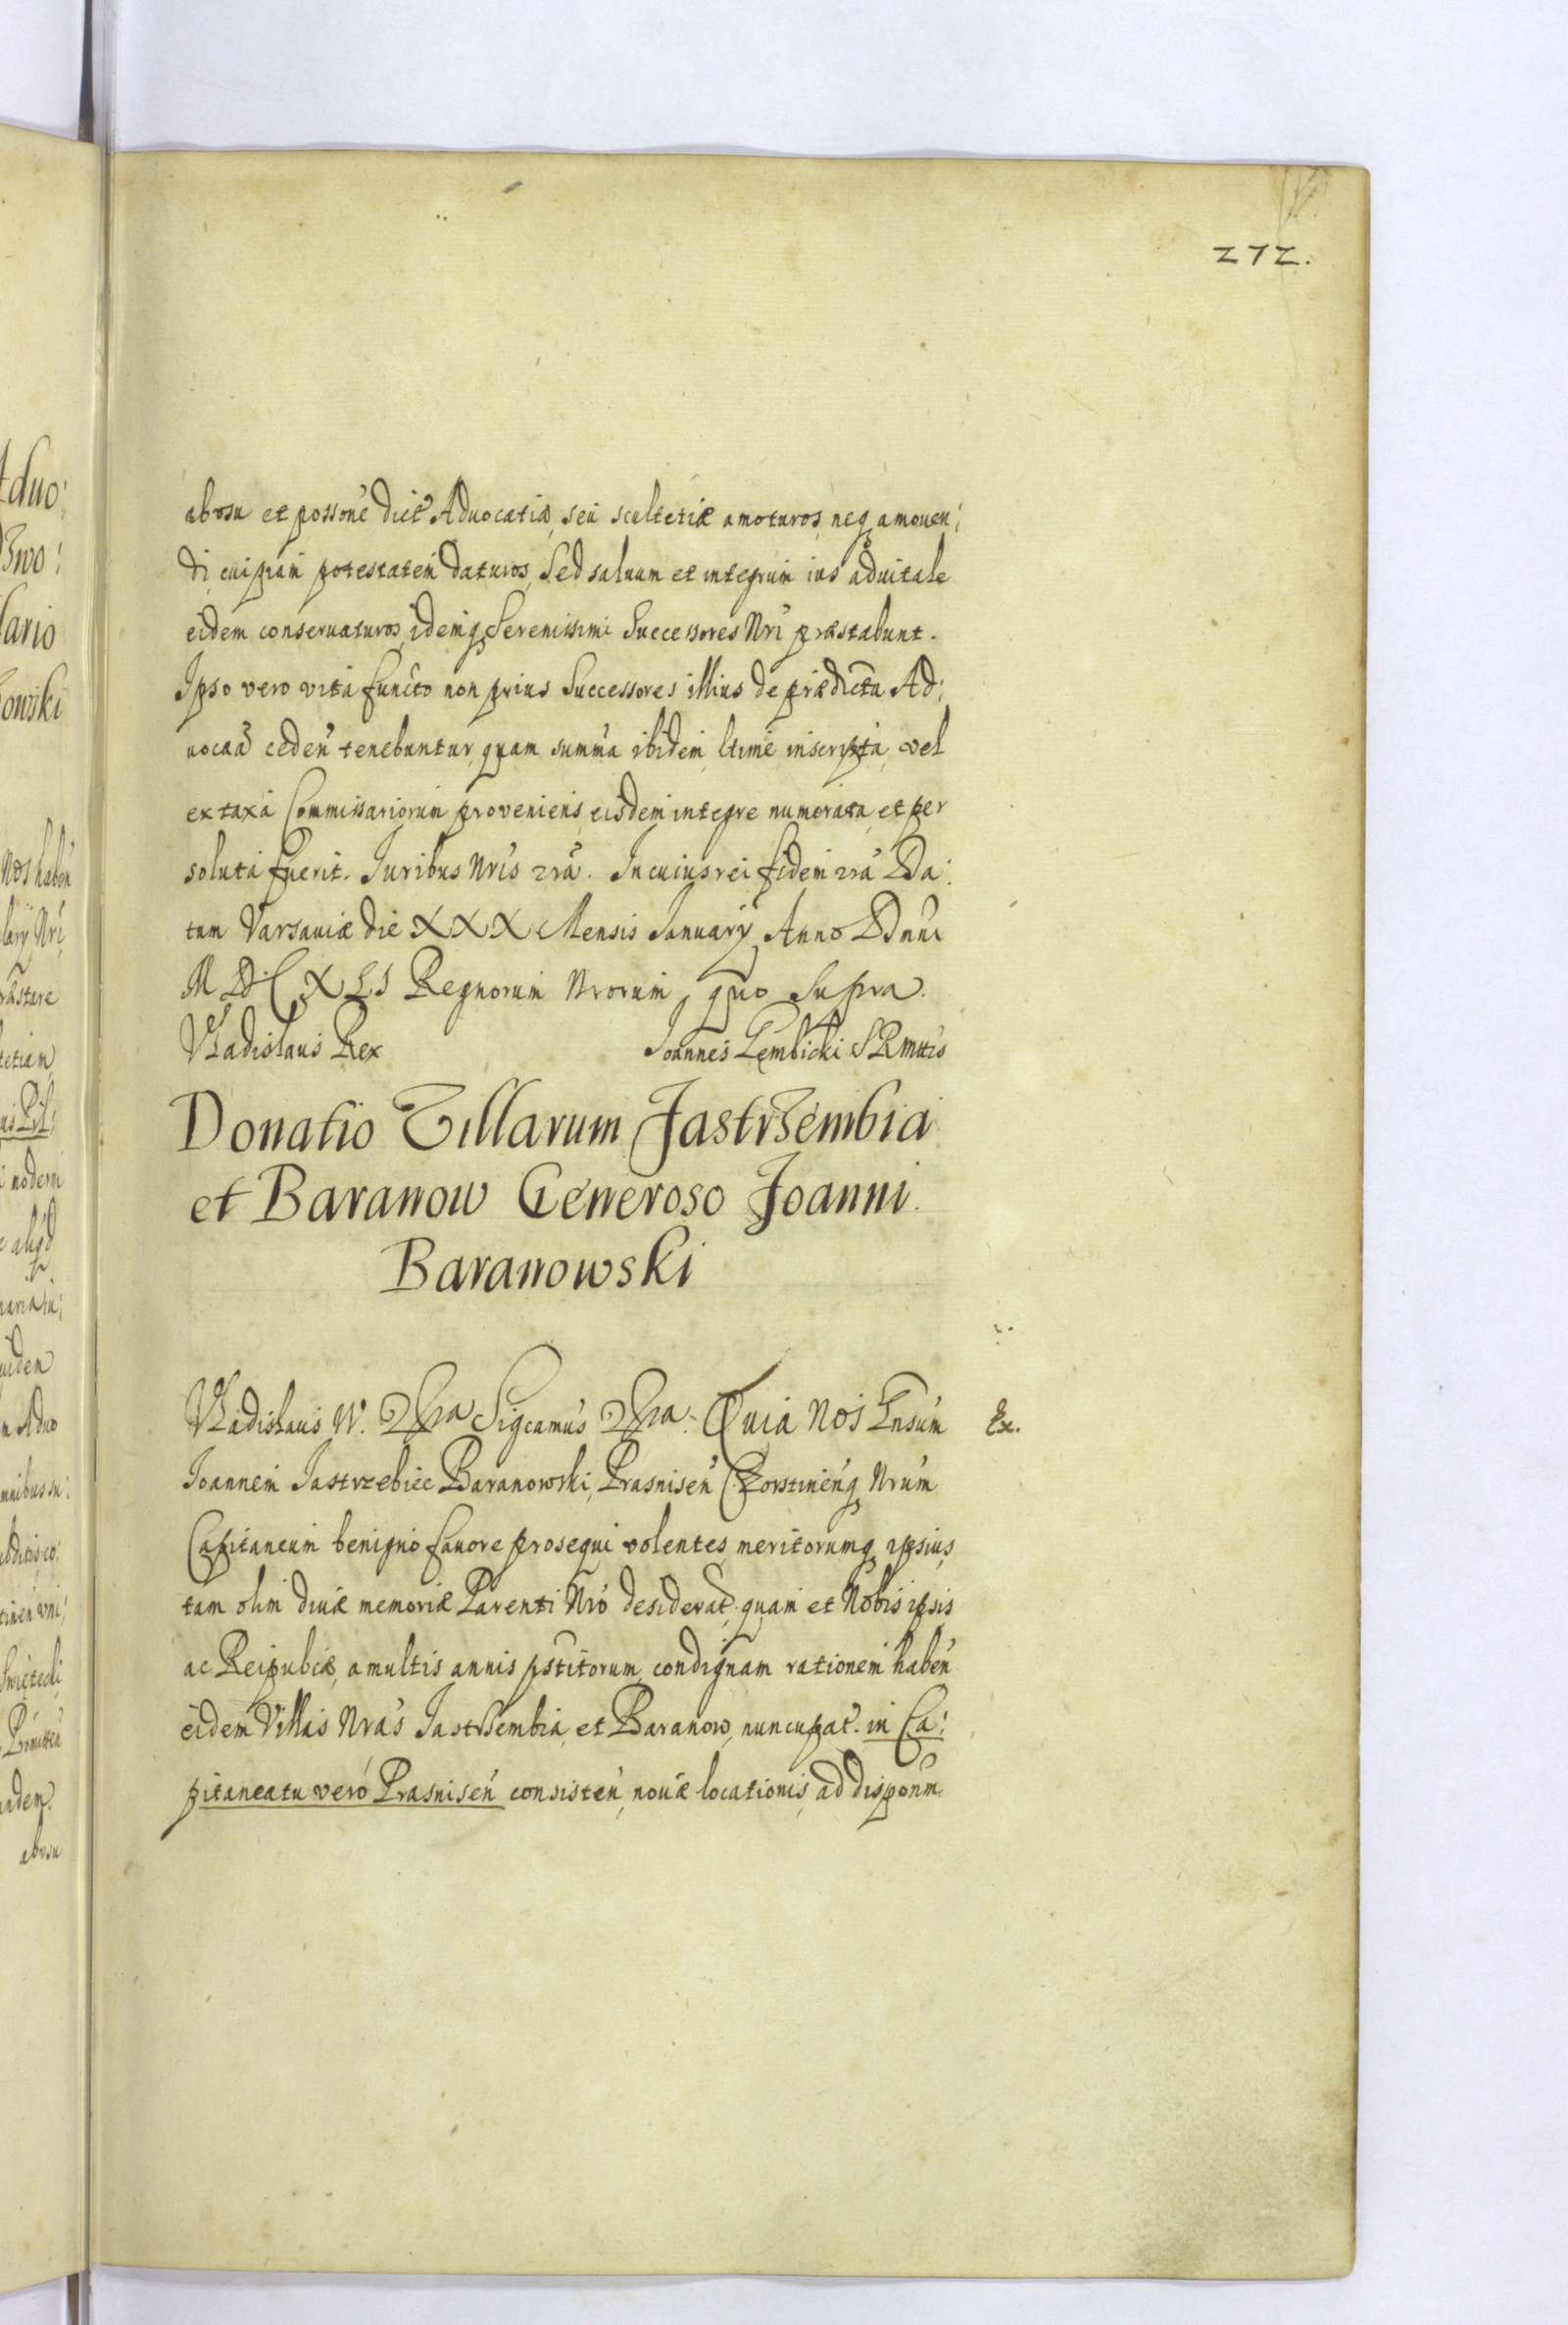 272.
ab usu et possoné dict Aduocatiæ, seu scultetiæ amoturos, neq amouen:
di cuipiam potestatem daturos, Sed saluum et integrum ius aduitale
eidem conseruaturos, idemq Serenissimi Successores Nri præstabunt.
Ipso vero vita functo non prius Successores illius de prædicta Ad:
uocaā ceden tenebuntur, quam summa ibidem ltime inscripta, vel
ex taxa Commissariorum proveniens, eisdem integre numerata, et per
soluta fuerit. Iuribus Nris 2ra. In cuius rei fidem 2ra Da:
tum Varsauiæ die XXX Mensis January Anno Dnni
MDCXLI Regnorum Nrorum, quo supra.
Vladislaus Rex Joannes Gembicki SRMttis
Donatio Villarum Jastrzembia
et Baranow Generoso Joanni
Baranowski
Vladislaus IV. 2ra Sigcamus 2ra. Quia Nos Gnsum
Ex.
Joannem Jastrzebiec Baranowski, Prasnisen Corstinenq Nrum
Capitaneum benigno fauore prosequi volentes, meritorumq ipsius,
tam olim diuæ memoriæ Parenti Nro desiderat. quam et Nobis ipsis
ac Reipubcæ, a multis annis pstitorum, condignam rationem haben
eidem Villas Nras Jastrzembia, et Baranow, nuncupat. in Ca:
pitaneatu vero Prasnisen consisten, nouæ locationis, ad disponm